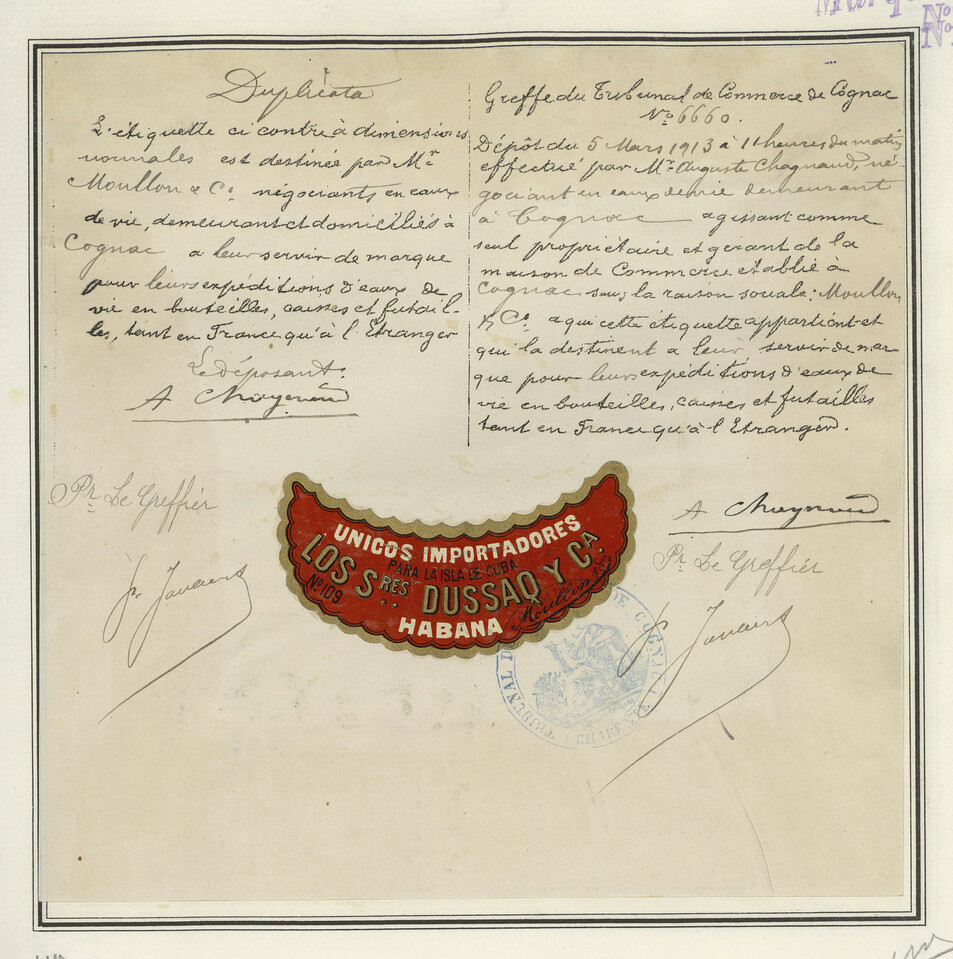 Duplicata
L'étiquette ci contre à dimensions
normales est destinée par Mr
Moullon & Co négociants en eaux
de vie, demeurant et domiciliés à
Cognac a leur servir de marque
pour leurs expéditions d'eaux de
vie en bouteilles, caisses et futail-
les, tant en France qu'à l'Etranger
Le déposant.
Pr Le Greffier
Greffe du Tribunal de Commerce de Cognac
No 6660.
Dépôt du 5 Mars 1913 à 11 heures du matin
effectué par Mr Auguste Chagnaud, né-
gociant en eaux de vie demeurant
à Cognac agissant comme
seul propriétaire et gérant de la
maison de Commerce établie à
Cognac sous la raison sociale: Moullon
& Co a qui cette étiquette appartient et
qui la destinent a leur servir de mar
que pour leurs expéditions d'eaux de
vie en bouteilles, caisses et futailles
tant en France qu'à l'Etranger.
Pr Le Greffier
UNICOS IMPORTADORES
PARA LA ISLA DE CUBA
LOS SRES DUSSAQ Y CA
No 109
HABANA
TRIBUNAL DE COGNAC
No
No